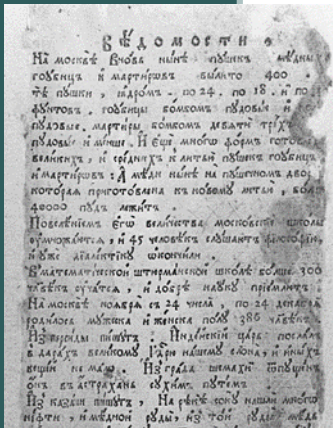 ВѢДОМОСТИ
На москвѣ вновь нынѣ пушекъ мѣдныхъ
гоубицъ и мартировъ вылито 400
тѣ пушки, ядромъ. по 24. по 18. и по
фунтовъ. гоубицы бомбомъ пудовые и
пудовые. мартиры бомбомъ девяти трехъ
пудовые и менше. И еще много формъ готовы
великихъ, и среднихъ к литью пушекъ гоубицъ
и мартировъ: А мѣди нынѣ на пушечном дворѣ
которая приготовлена к новому литью, болше
40000 пудъ лежитъ.
Повелениемъ его величества московские школы
умножаются, и 45 человѣкъ слушаютъ философию,
и уже диалектику окончили.
В математической штюрманской школѣ болше 300
человѣкъ учатся, и добрѣ науку приемлютъ
На москвѣ ноября съ 24 числа, по 24 декабря
родилось мужеска и женска полу 386 человѣкъ.
Из персиды пишутъ. Индѣйский царь послалъ
в дарахъ великому Царю нашему слона, и иныхъ
вещей не мало. Из града шемахи отпущенъ
онъ въ астрахань сухимъ путемъ
Из казани пишутъ, На рѣкѣ соку нашли много
нефти, и мѣдной руды, из той руды мѣдь